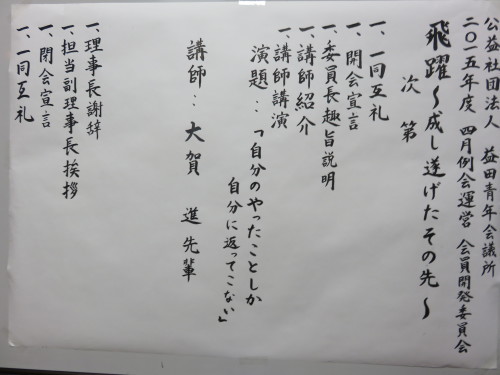 公益社団法人 益田青年会議所
二〇一五年度 四月例会運営 会員開発委員会
飛躍～成し遂げたその先～
次第
一、一同互礼
一、開会宣言
一、委員長趣旨説明
一、講師紹介
一、講師講演
演題：「自分のやったことしか
自分に返ってこない」
講師：大賀 進先輩
一、理事長謝辞
一、担当副理事長挨拶
一、閉会宣言
一、一同互礼